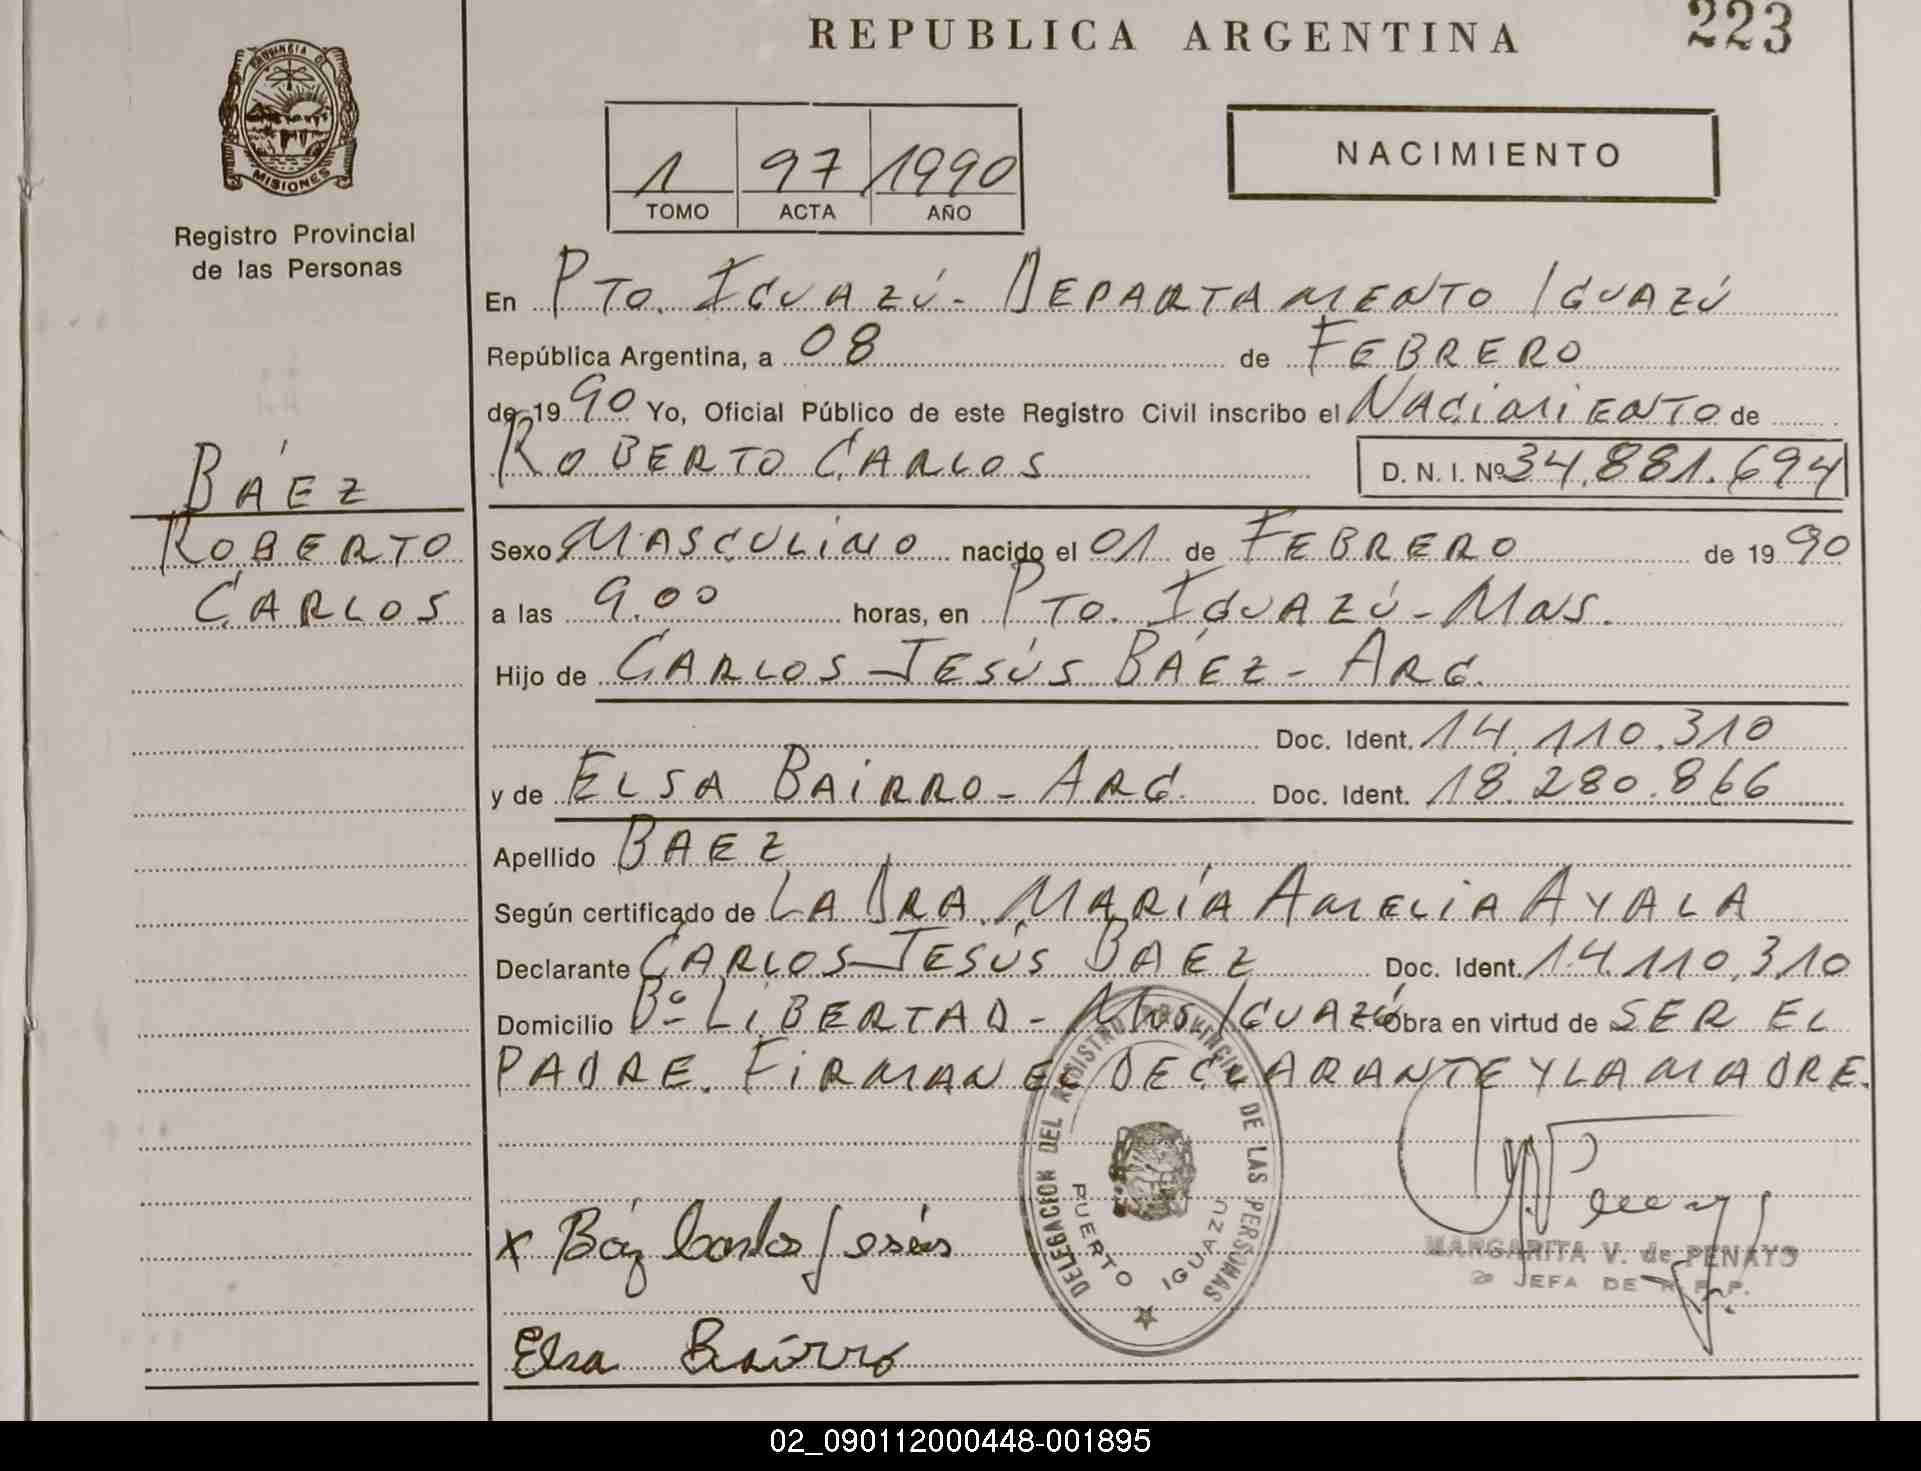 REPUBLICA ARGENTINA
223
PROVINCIA DE
MISIONES
Registro Provincial
de las Personas
1 97 1990
TOMO ACTA AÑO
NACIMIENTO
En Pto. Iguazú - Departamento Iguazú
República Argentina, a 08 de Febrero
de 19 90 Yo, Oficial Público de este Registro Civil inscribo el Nacimiento de
Roberto Carlos D. N. I. Nº 34.881.694
Báez
Roberto
Carlos
Sexo Masculino nacido el 01 de Febrero de 19 90
a las 9.00 horas, en Pto. Iguazú - Mns.
Hijo de Carlos Jesús Báez - Arg.
Doc. Ident. 14.110.310
y de Elsa Bairro - Arg. Doc. Ident. 18.280.866
Apellido Baez
Según certificado de La Dra. María Amelia Ayala
Declarante Carlos Jesús Baez Doc. Ident. 14.110.310
Domicilio Bº Libertad - Mns. Iguazú Obra en virtud de ser el
padre. Firman el declarante y la madre.
DELEGACION DEL REGISTRO PROVINCIAL DE LAS PERSONAS
PUERTO IGUAZU
x Báez Carlos Jesús
MARGARITA V. de PENAYO
JEFA DE R. P. P.
Elsa Bairro
02_090112000448-001895